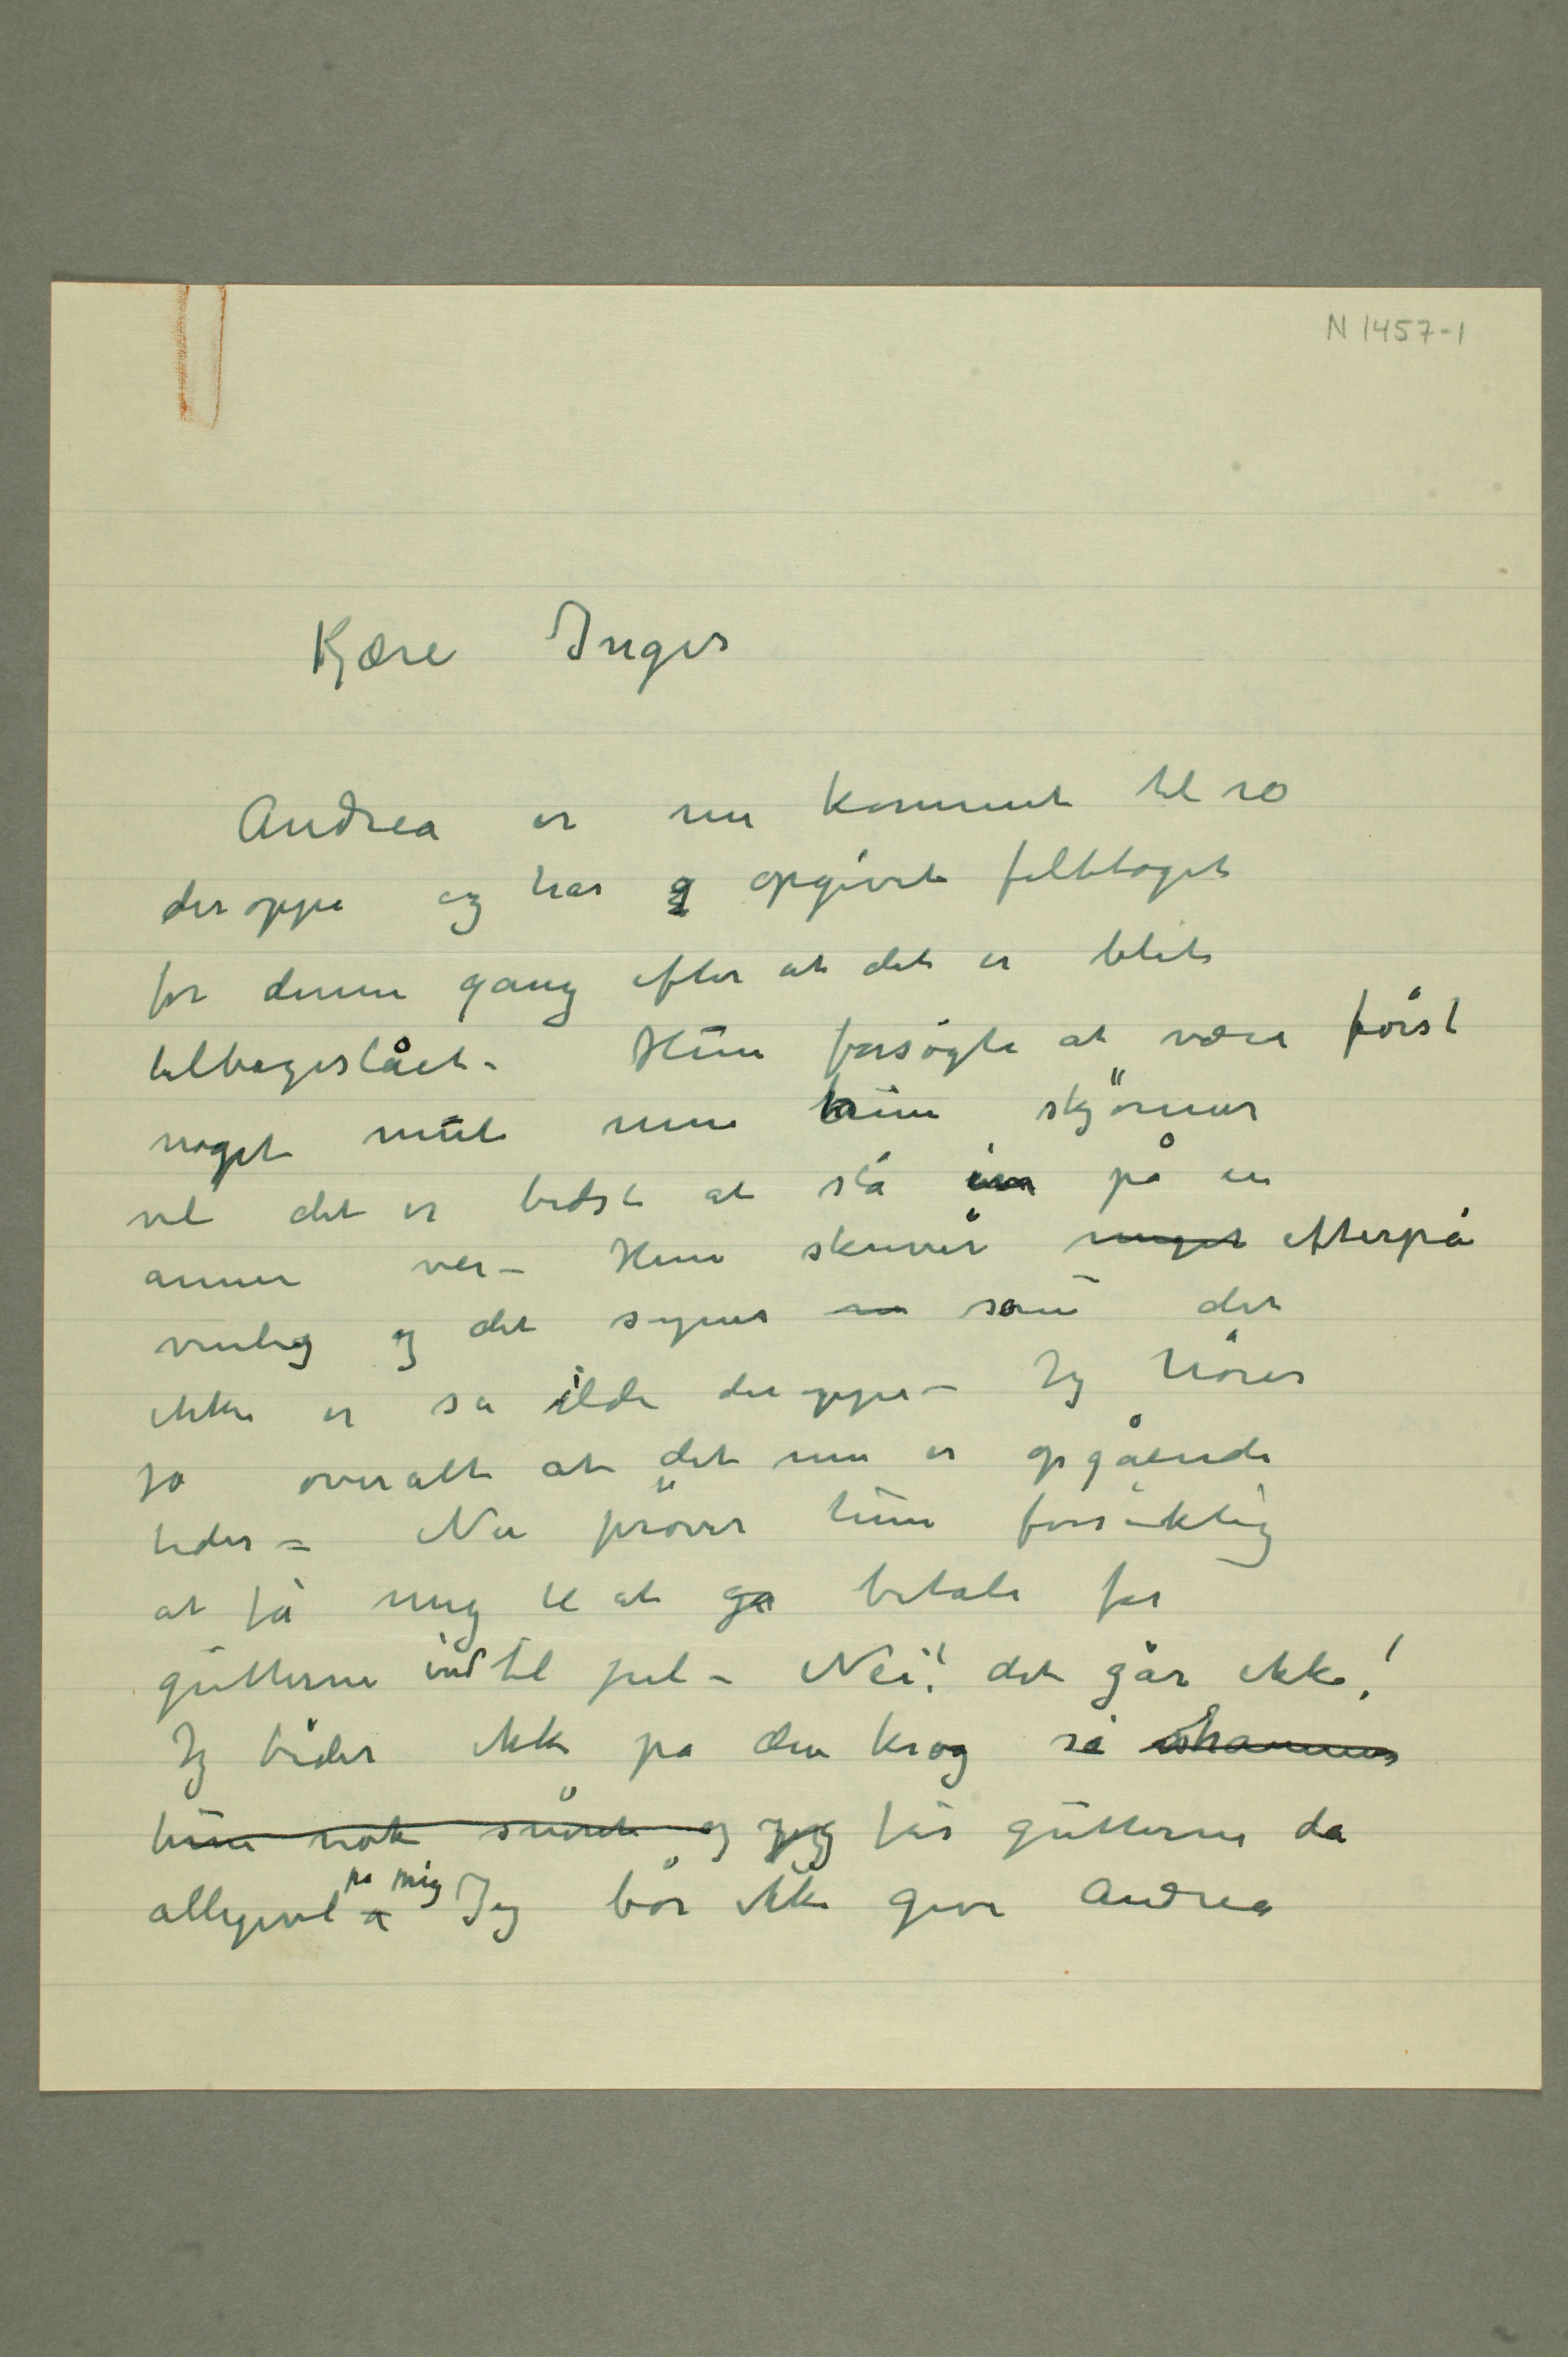 N 1457-1
Kjære Inger
Andrea er nu kommet til ro
deroppe og har opgivet felttoget
for denne gang efter at det er blit
tilbageslået – Hun forsøgte at være først
noget mut men hun skjønner
vel det er bedst at slå in på en
annen vei – Hun skriver noget efterpå
venlig og det synes som det
ikke er så ilde deroppe – Jeg hører
jo overalt at det nu er opgående
tider – Nu prøver hun forsiktig
at få mig til at betale for
gutterne indtil jul – Nei! det går ikke!
Jeg bider ikke på den krog så
hun nok snøret og jeg får gutterne da
alligevel på mig Jeg bør ikke give Andrea